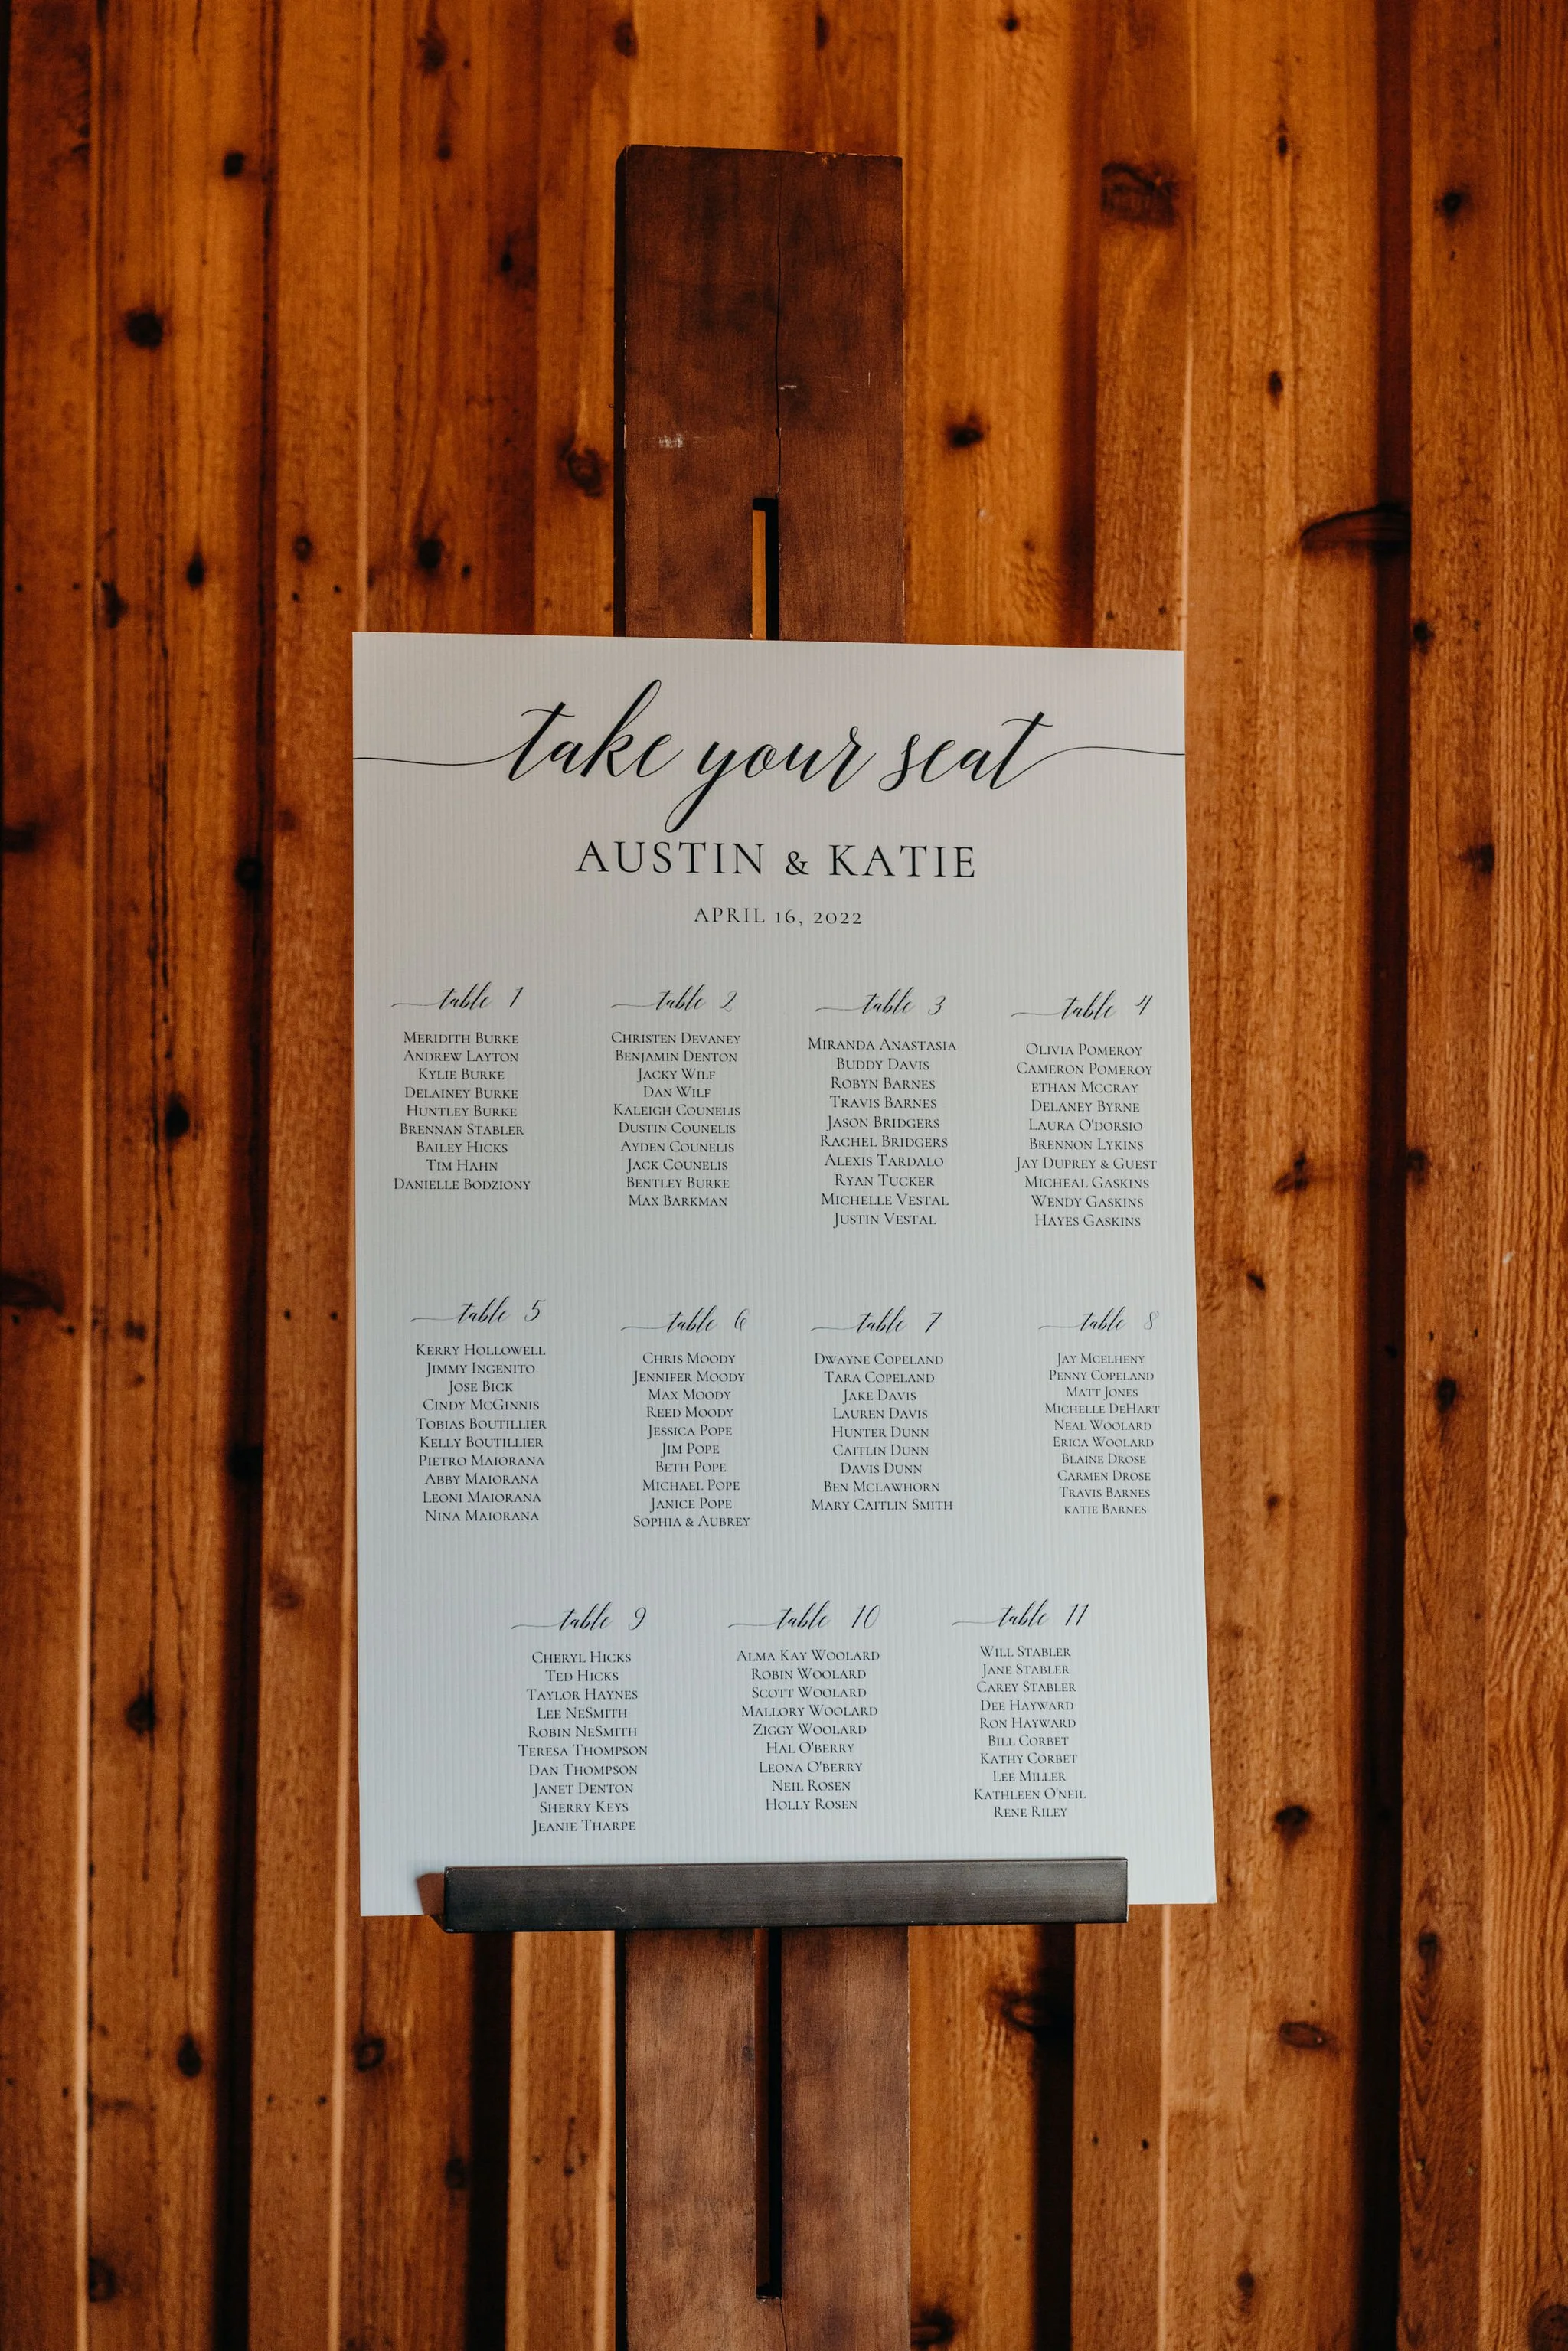 take your seat
AUSTIN & KATIE
APRIL 16, 2022
table 1
MERIDITH BURKE
ANDREW LAYTON
KYLIE BURKE
DELAINEY BURKE
HUNTLEY BURKE
BRENNAN STABLER
BAILEY HICKS
TIM HAHN
DANIELLE BODZIONY
table 2
CHRISTEN DEVANEY
BENJAMIN DENTON
JACKY WILF
DAN WILF
KALEIGH COUNELIS
DUSTIN COUNELIS
AYDEN COUNELIS
JACK COUNELIS
BENTLEY BURKE
MAX BARKMAN
table 3
MIRANDA ANASTASIA
BUDDY DAVIS
ROBYN BARNES
TRAVIS BARNES
JASON BRIDGERS
RACHEL BRIDGERS
ALEXIS TARDALO
RYAN TUCKER
MICHELLE VESTAL
JUSTIN VESTAL
table 4
OLIVIA POMEROY
CAMERON POMEROY
ETHAN MCCRAY
DELANEY BYRNE
LAURA O'DORSIO
BRENNON LYKINS
JAY DUPREY & GUEST
MICHEAL GASKINS
WENDY GASKINS
HAYES GASKINS
table 5
KERRY HOLLOWELL
JIMMY INGENITO
JOSE BICK
CINDY MCGINNIS
TOBIAS BOUTILLIER
KELLY BOUTILLIER
PIETRO MAIORANA
ABBY MAIORANA
LEONI MAIORANA
NINA MAIORANA
table 6
CHRIS MOODY
JENNIFER MOODY
MAX MOODY
REED MOODY
JESSICA POPE
JIM POPE
BETH POPE
MICHAEL POPE
JANICE POPE
SOPHIA & AUBREY
table 7
DWAYNE COPELAND
TARA COPELAND
JAKE DAVIS
LAUREN DAVIS
HUNTER DUNN
CAITLIN DUNN
DAVIS DUNN
BEN MCLAWHORN
MARY CAITLIN SMITH
table 8
JAY MCELHENY
PENNY COPELAND
MATT JONES
MICHELLE DEHART
NEAL WOOLARD
ERICA WOOLARD
BLAINE DROSE
CARMEN DROSE
TRAVIS BARNES
KATIE BARNES
table 9
CHERYL HICKS
TED HICKS
TAYLOR HAYNES
LEE NESMITH
ROBIN NESMITH
TERESA THOMPSON
DAN THOMPSON
JANET DENTON
SHERRY KEYS
JEANIE THARPE
table 10
ALMA KAY WOOLARD
ROBIN WOOLARD
SCOTT WOOLARD
MALLORY WOOLARD
ZIGGY WOOLARD
HAL O'BERRY
LEONA O'BERRY
NEIL ROSEN
HOLLY ROSEN
table 11
WILL STABLER
JANE STABLER
CAREY STABLER
DEE HAYWARD
RON HAYWARD
BILL CORBET
KATHY CORBET
LEE MILLER
KATHLEEN O'NEIL
RENE RILEY